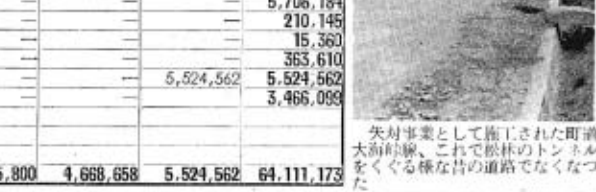 5,706,184
— — 210,145
— — 15,360
— — 363,610
— — 5,524,562 5,524,562
3,466,099
5,800 4,668,658 5,524,562 64,111,173
失対事業として施工された町道
大海峠線、これで松林のトンネル
をくぐる様な昔の道路でなくなつ
た